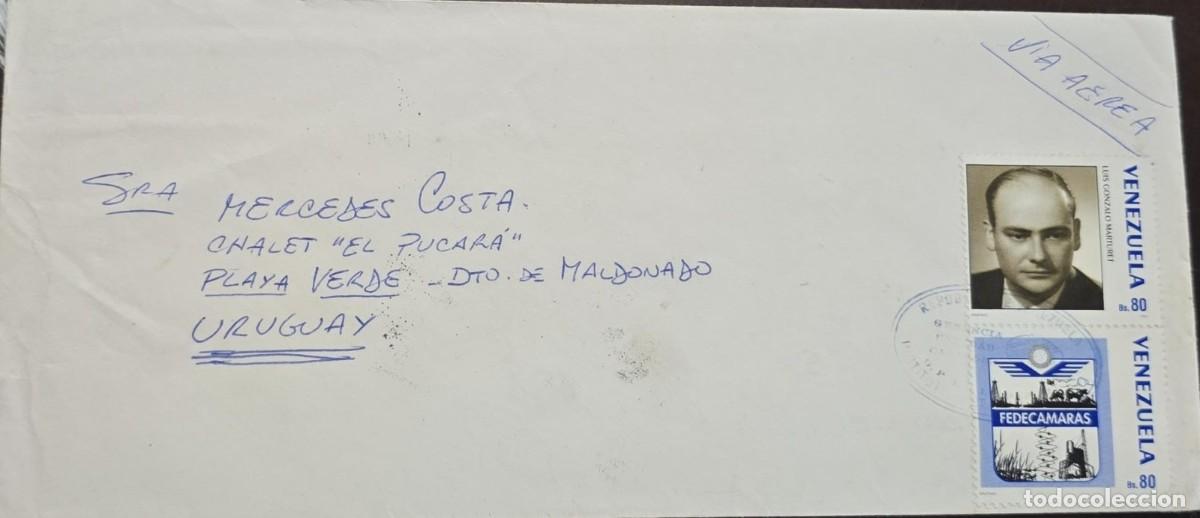 VIA AEREA
SRA MERCEDES COSTA.
CHALET "EL PUCARÁ"
PLAYA VERDE - DTO. DE MALDONADO
URUGUAY
LUIS GONZALO MARTURET
VENEZUELA
Bs. 80
FEDECAMARAS
VENEZUELA
Bs. 80
todocoleccion